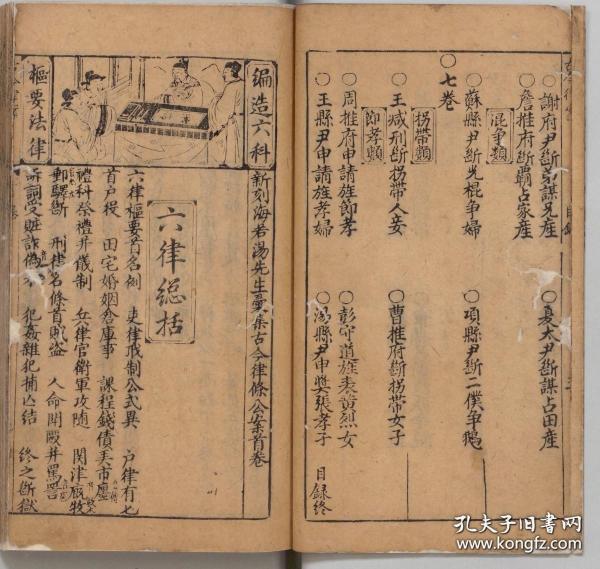 謝府尹斷弟謀兄産
○夏太尹斷謀占田産
○詹推府斷霸占家産
混爭類
○蘇縣尹斷光棍爭婦
○項縣尹斷二僕爭鵝
○七卷
拐帶類
○王減刑斷拐帶人妾
○曹推府斷拐帶女子
節孝類
○周推府申請旌節孝
○彭守道旌表黃烈女
○王縣尹申請旌孝婦
○湯縣尹申獎張孝子
目錄終
編造六科
樞要法律
新刻海若湯先生彙集古今律條公案首卷
六律總括
六律樞要首名例 吏律戒制公式異 戶律有七
首戶役 田宅婚姻倉庫事 課程錢債及市廛
禮科祭禮并儀制 兵律官衛軍攻隨 関津廐牧
郵驛斷 刑律名條首賊盜 人命鬪毆并罵詈
訴詞受賍詐偽 犯姦雜犯捕亡結 終之斷獄
孔夫子旧書网
www.kongfz.com